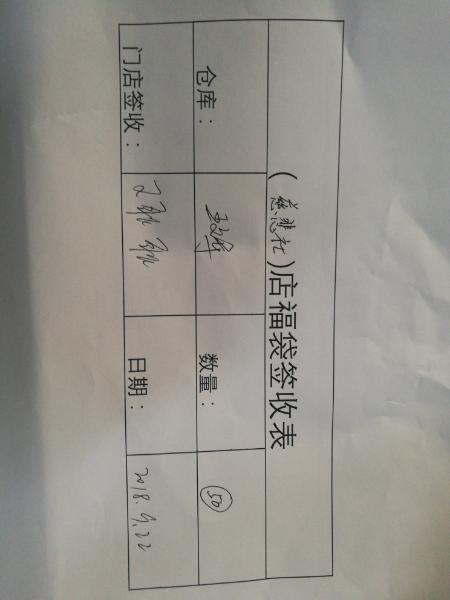 (慈悲社)店福袋签收表
仓库： 数量： 50
门店签收： 日期： 2018.9.22